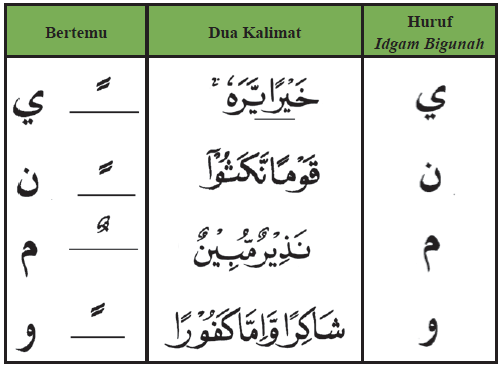 Bertemu Dua Kalimat Huruf Idgam Bigunah
ي ــًـ خَيْرًا يَّرَهٗ ي
ن ــًـ قَوْمًا نَّكَثُوْٓا ن
م ــٌـ نَذِيْرٌ مُّبِيْنٌ م
و ــًـ شَاكِرًا وَّاِمَّا كَفُوْرًا و